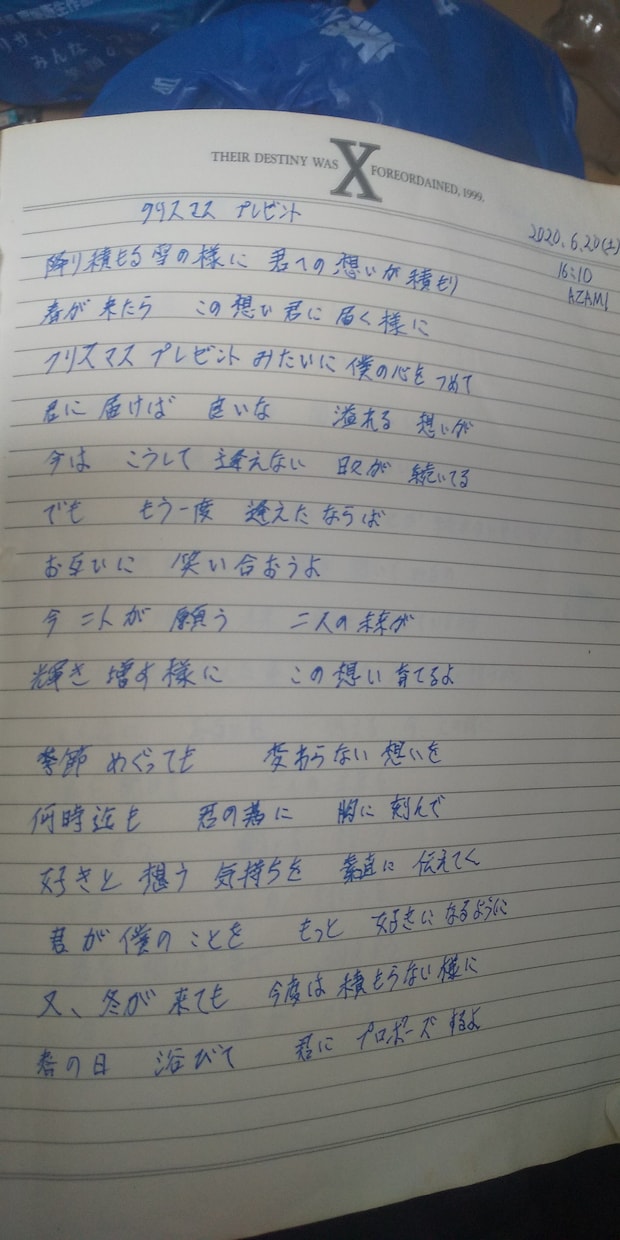 THEIR DESTINY WAS X FOREORDAINED, 1999.
クリスマス プレゼント
2020.6.20(土)
16:10
AZAMI
降り積もる雪の様に 君への想いが積もり
春が来たら この想い君に届く様に
クリスマスプレゼントみたいに僕の心をつめて
君に届けば 良いな 溢れる想いが
今は こうして逢えない 日々が 続いてる
でも もう一度 逢えたならば
お互いに 笑い合おうよ
今二人が 願う 二人の未来が
輝き増す様に この想い育てるよ
季節めぐっても 変わらない想いを
何時迄も 君の為に 胸に刻んで
好きと想う気持ちを 素直に伝えてく
君が僕のことを もっと好きになるように
又、冬が来ても 今度は積もらない様に
春の日 浴びて 君にプロポーズするよ